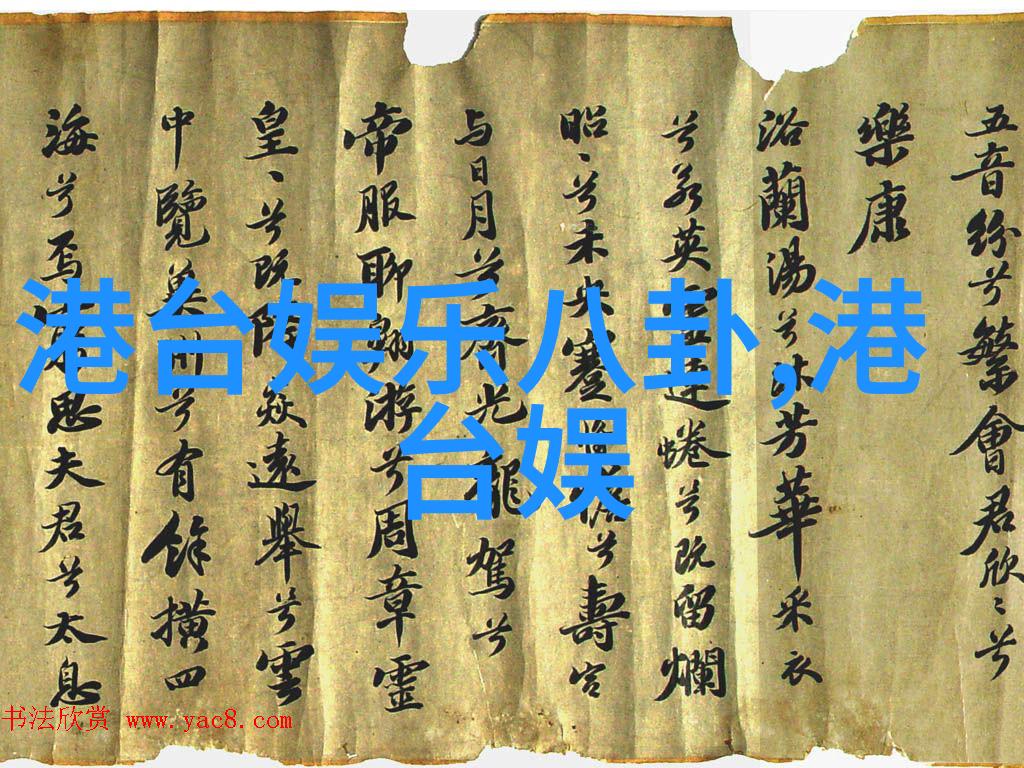 五音紛兮繁會君欣〻兮
樂康
浴蘭湯兮沐芳華采衣
兮若英連蜷兮既留爛
昭〻兮未央蹇兮壽宮
与日月兮齊光龍駕兮
帝服聊翱游兮周章靈
皇〻兮既降猋遠舉兮雲
中覽冀州兮有餘橫四
海兮焉思夫君兮太息
港台娱乐八卦,港
台娱
书法欣赏 www.yac8.com